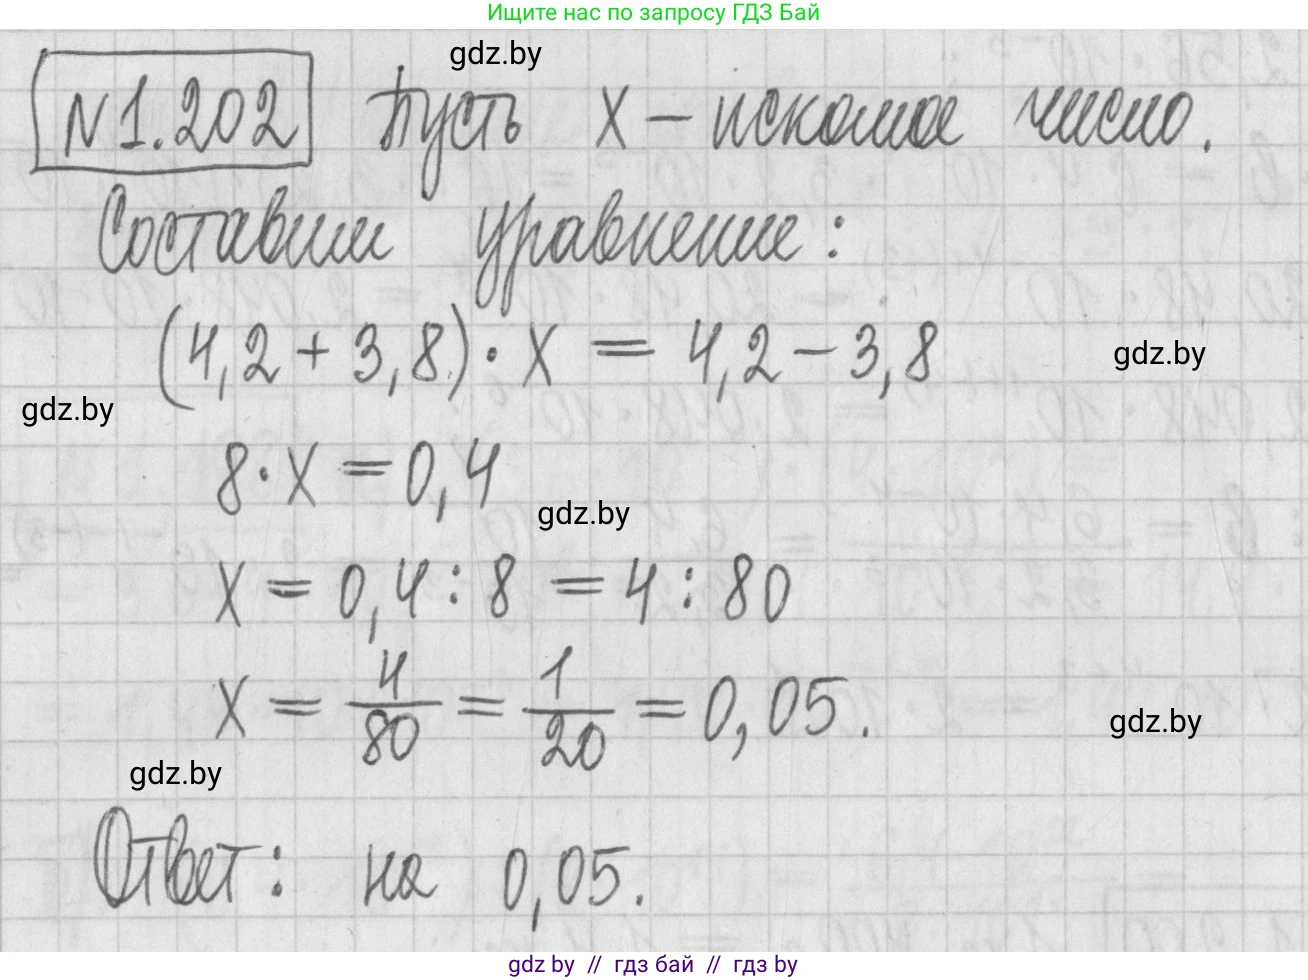 Ищите нас по запросу ГДЗ Бай
gdz.by
N1.202 Пусть x – искомое число.
Составим уравнение:
(4,2 + 3,8) · x = 4,2 – 3,8
gdz.by
gdz.by
8 · x = 0,4
gdz.by
x = 0,4 : 8 = 4 : 80
x = 4/80 = 1/20 = 0,05.
gdz.by
gdz.by
Ответ: на 0,05.
gdz by // гдз бай // гдз by